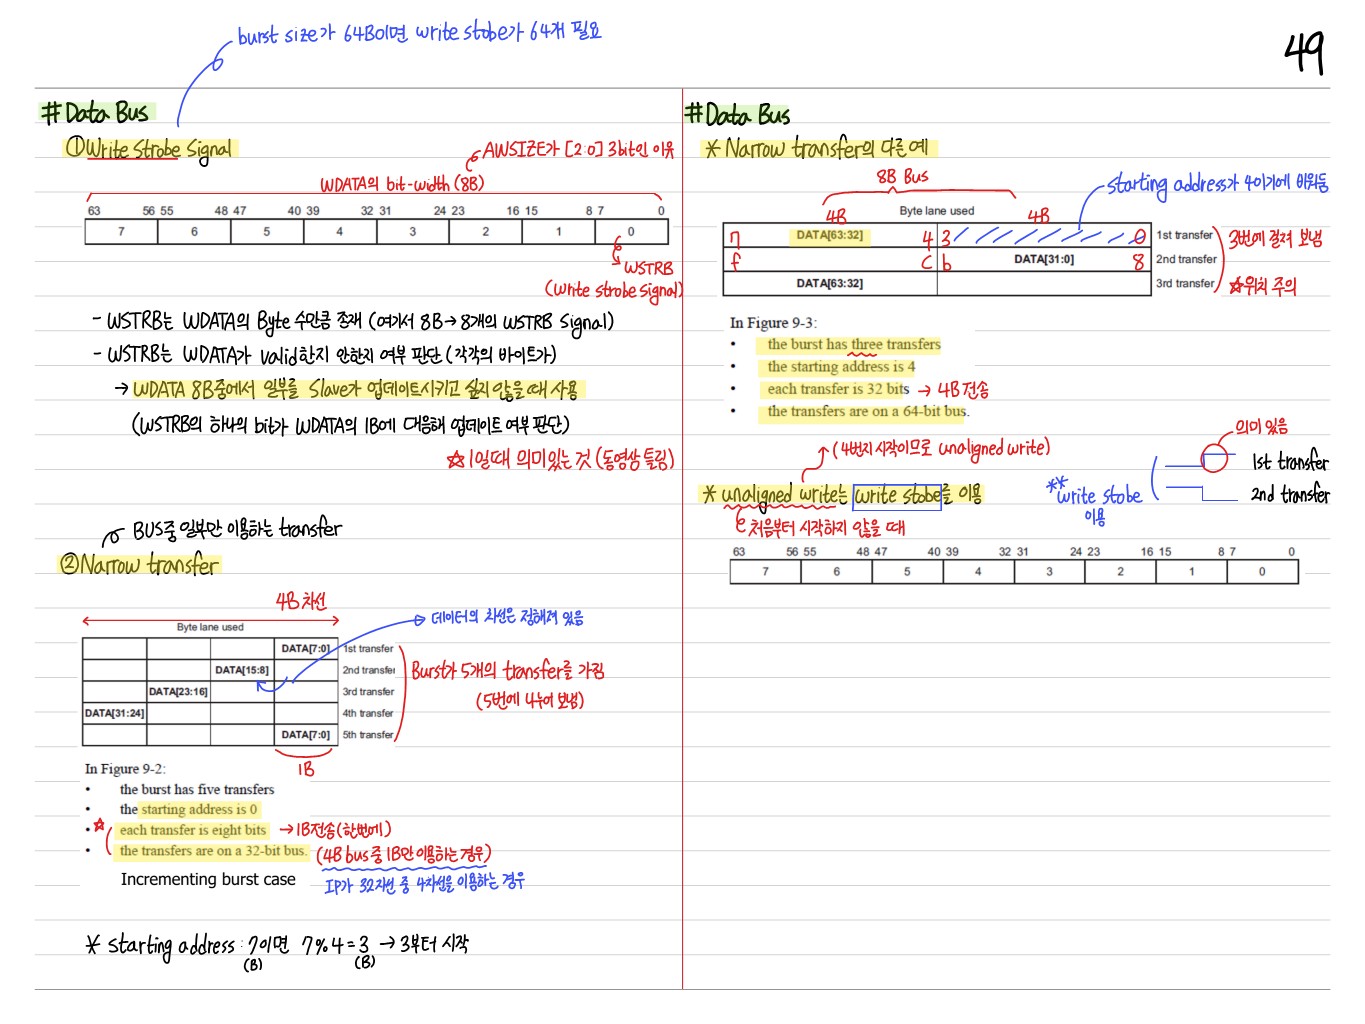 burst size가 64B이면 write stobe가 64개 필요
49
#Data Bus
①Write Strobe Signal
AWSIZE가 [2:0] 3bit인 이유
WDATA의 bit-width (8B)
63 56 55 48 47 40 39 32 31 24 23 16 15 8 7 0
7 6 5 4 3 2 1 0
WSTRB
(Write strobe signal)
- WSTRB는 WDATA의 Byte 수만큼 존재 (여기서 8B→8개의 WSTRB Signal)
- WSTRB는 WDATA가 valid한지 안한지 여부 판단 (각각의 바이트가)
→ WDATA 8B중에서 일부를 Slave가 업데이트시키고 싶지 않을때 사용
(WSTRB의 하나의 bit가 WDATA의 1B에 대응해 업데이트 여부 판단)
☆1일때 의미있는 것 (동영상 틀림)
BUS중 일부만 이용하는 transfer
②Narrow transfer
4B 차선
Byte lane used
데이터의 차선은 정해져 있음
DATA[7:0] 1st transfer
DATA[15:8] 2nd transfer
DATA[23:16] 3rd transfer
DATA[31:24] 4th transfer
DATA[7:0] 5th transfer
Burst가 5개의 transfer를 가짐
(5번에 나누어 보냄)
1B
In Figure 9-2:
• the burst has five transfers
• the starting address is 0
• ☆ each transfer is eight bits → 1B전송(한번에)
• the transfers are on a 32-bit bus. (4B bus중 1B만 이용하는 경우)
Incrementing burst case
IP가 32차선 중 4차선을 이용하는 경우
* starting address : 7이면 7%4=3 → 3부터 시작
(B) (B)
#Data Bus
* Narrow transfer의 다른예
8B Bus
starting address가 4이기에 비워둠
4B Byte lane used 4B
7 DATA[63:32] 4 3 0 1st transfer
f c b DATA[31:0] 8 2nd transfer
DATA[63:32] 3rd transfer
3번에 걸쳐 보냄
☆위치 주의
In Figure 9-3:
• the burst has three transfers
• the starting address is 4
• each transfer is 32 bits → 4B전송
• the transfers are on a 64-bit bus.
(4번지 시작이므로 unaligned write)
의미 있음
1st transfer
2nd transfer
**write stobe
이용
* unaligned write는 write stobe를 이용
처음부터 시작하지 않을 때
63 56 55 48 47 40 39 32 31 24 23 16 15 8 7 0
7 6 5 4 3 2 1 0